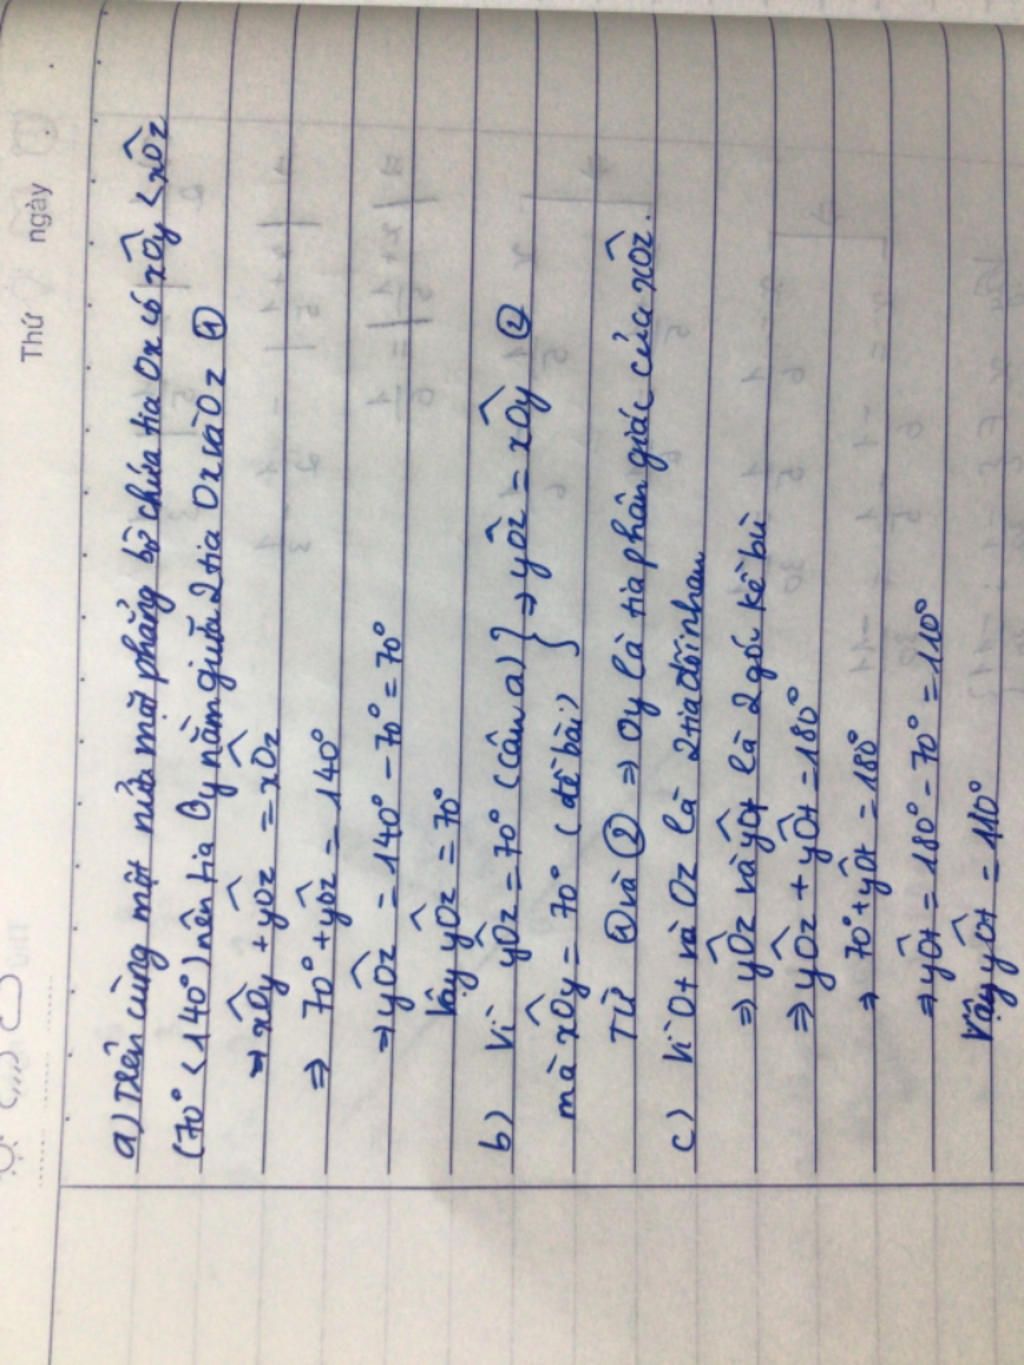 Thứ ngày
a) Trên cùng một nửa mặt phẳng bờ chứa tia Ox có xÔy < xÔz
(70° < 140°) nên tia Oy nằm giữa 2 tia Ox và Oz ①
⇒ xÔy + yÔz = xÔz
⇒ 70° + yÔz = 140°
⇒ yÔz = 140° - 70° = 70°
Vậy yÔz = 70°
b) Vì yÔz = 70° (câu a) } ⇒ yÔz = xÔy ②
mà xÔy = 70° (đề bài)
Từ ① và ② ⇒ Oy là tia phân giác của xÔz.
c) Vì Ot và Oz là 2 tia đối nhau
⇒ yÔz và yÔt là 2 góc kề bù
⇒ yÔz + yÔt = 180°
⇒ 70° + yÔt = 180°
⇒ yÔt = 180° - 70° = 110°
Vậy yÔt = 110°